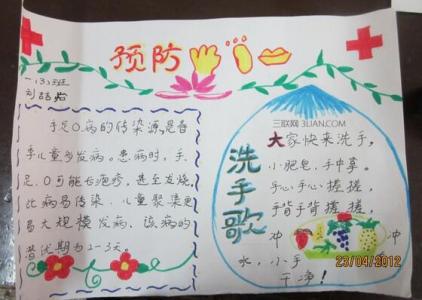 预防
一(3)班
三联网 3LIAN.COM
手足口病的传染源,是春
季儿童多发病。患病时,手、
足、口可能长疱疹,甚至发烧。
此病易传染、儿童聚集更
易大规模发病、该病的
潜伏期为2-3天。
洗手歌
大家快来洗手,
小肥皂,手中拿。
手心手心搓搓,
手背手背搓搓,
冲 冲
水,小手
干净!
23/04/2012